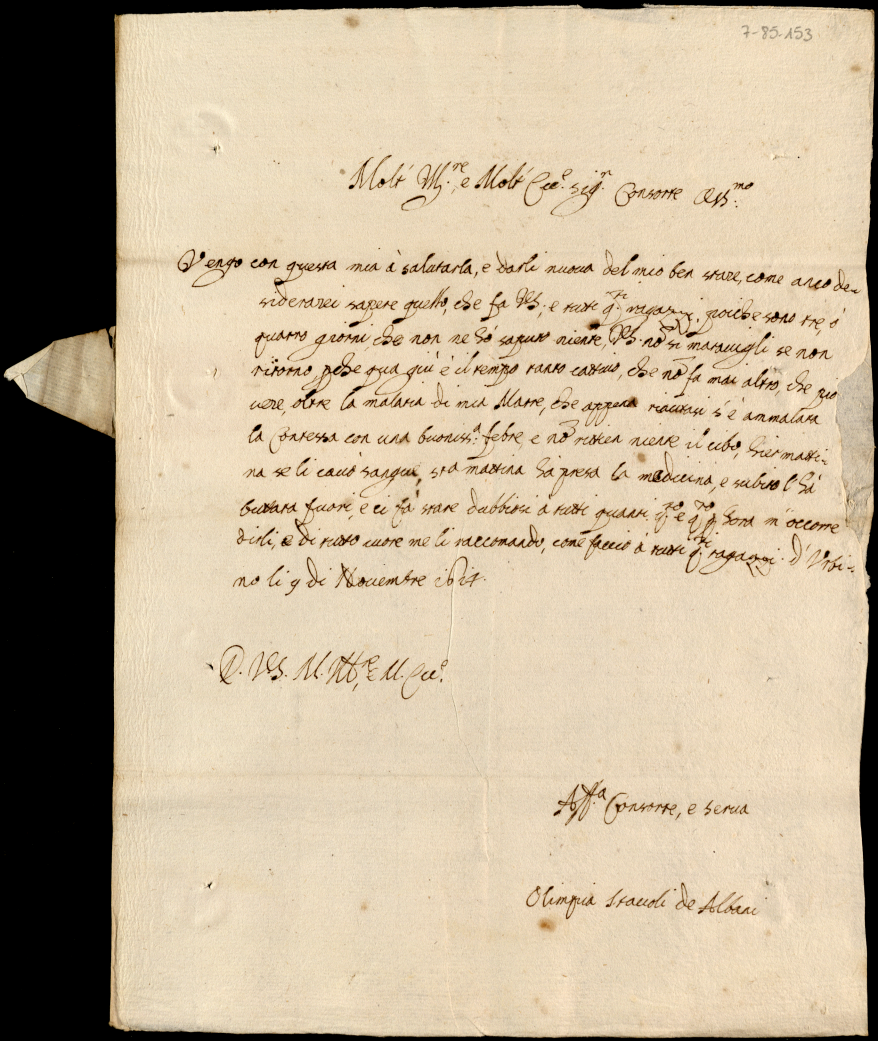 7-85-153
Molt' Ill.re, e Molt' Ecc.e Sig.r Consorte Oss.mo
Vengo con questa mia à salutarla, e darli nuova del mio ben stare, come anco de=
siderarei sapere quello, che fa VS., e tutti q.ti ragazzi, poiche sono tre, ò
quatro giorni, che non ne hò saputo niente, VS. nõ si maravigli se non
ritorno, pche qua giù è il tempo tanto cattivo, che nõ fa mai altro, che pio
vere, oltre la malatia di mia Matre, che appena
la Contessa con una buoniss.a febre, e nõ ritien niente il cibo, hier matti=
na se li cavò sangue, sta mattina hà presa la medicina, e subito l'hà
buttata fuori, e ci fà stare dubbiosi à tutti quanti q.to e q.to p hora m'occorre
dirli, e di tutto cuore me li raccomando, come faccio à tutti q.ti ragazzi. D'Urbi=
no li 9 di Novembre 1614.
D. VS. M. Ill.re, e M. Ecc.e
Aff.a Consorte, e serva
Olimpia Staccoli de Albani